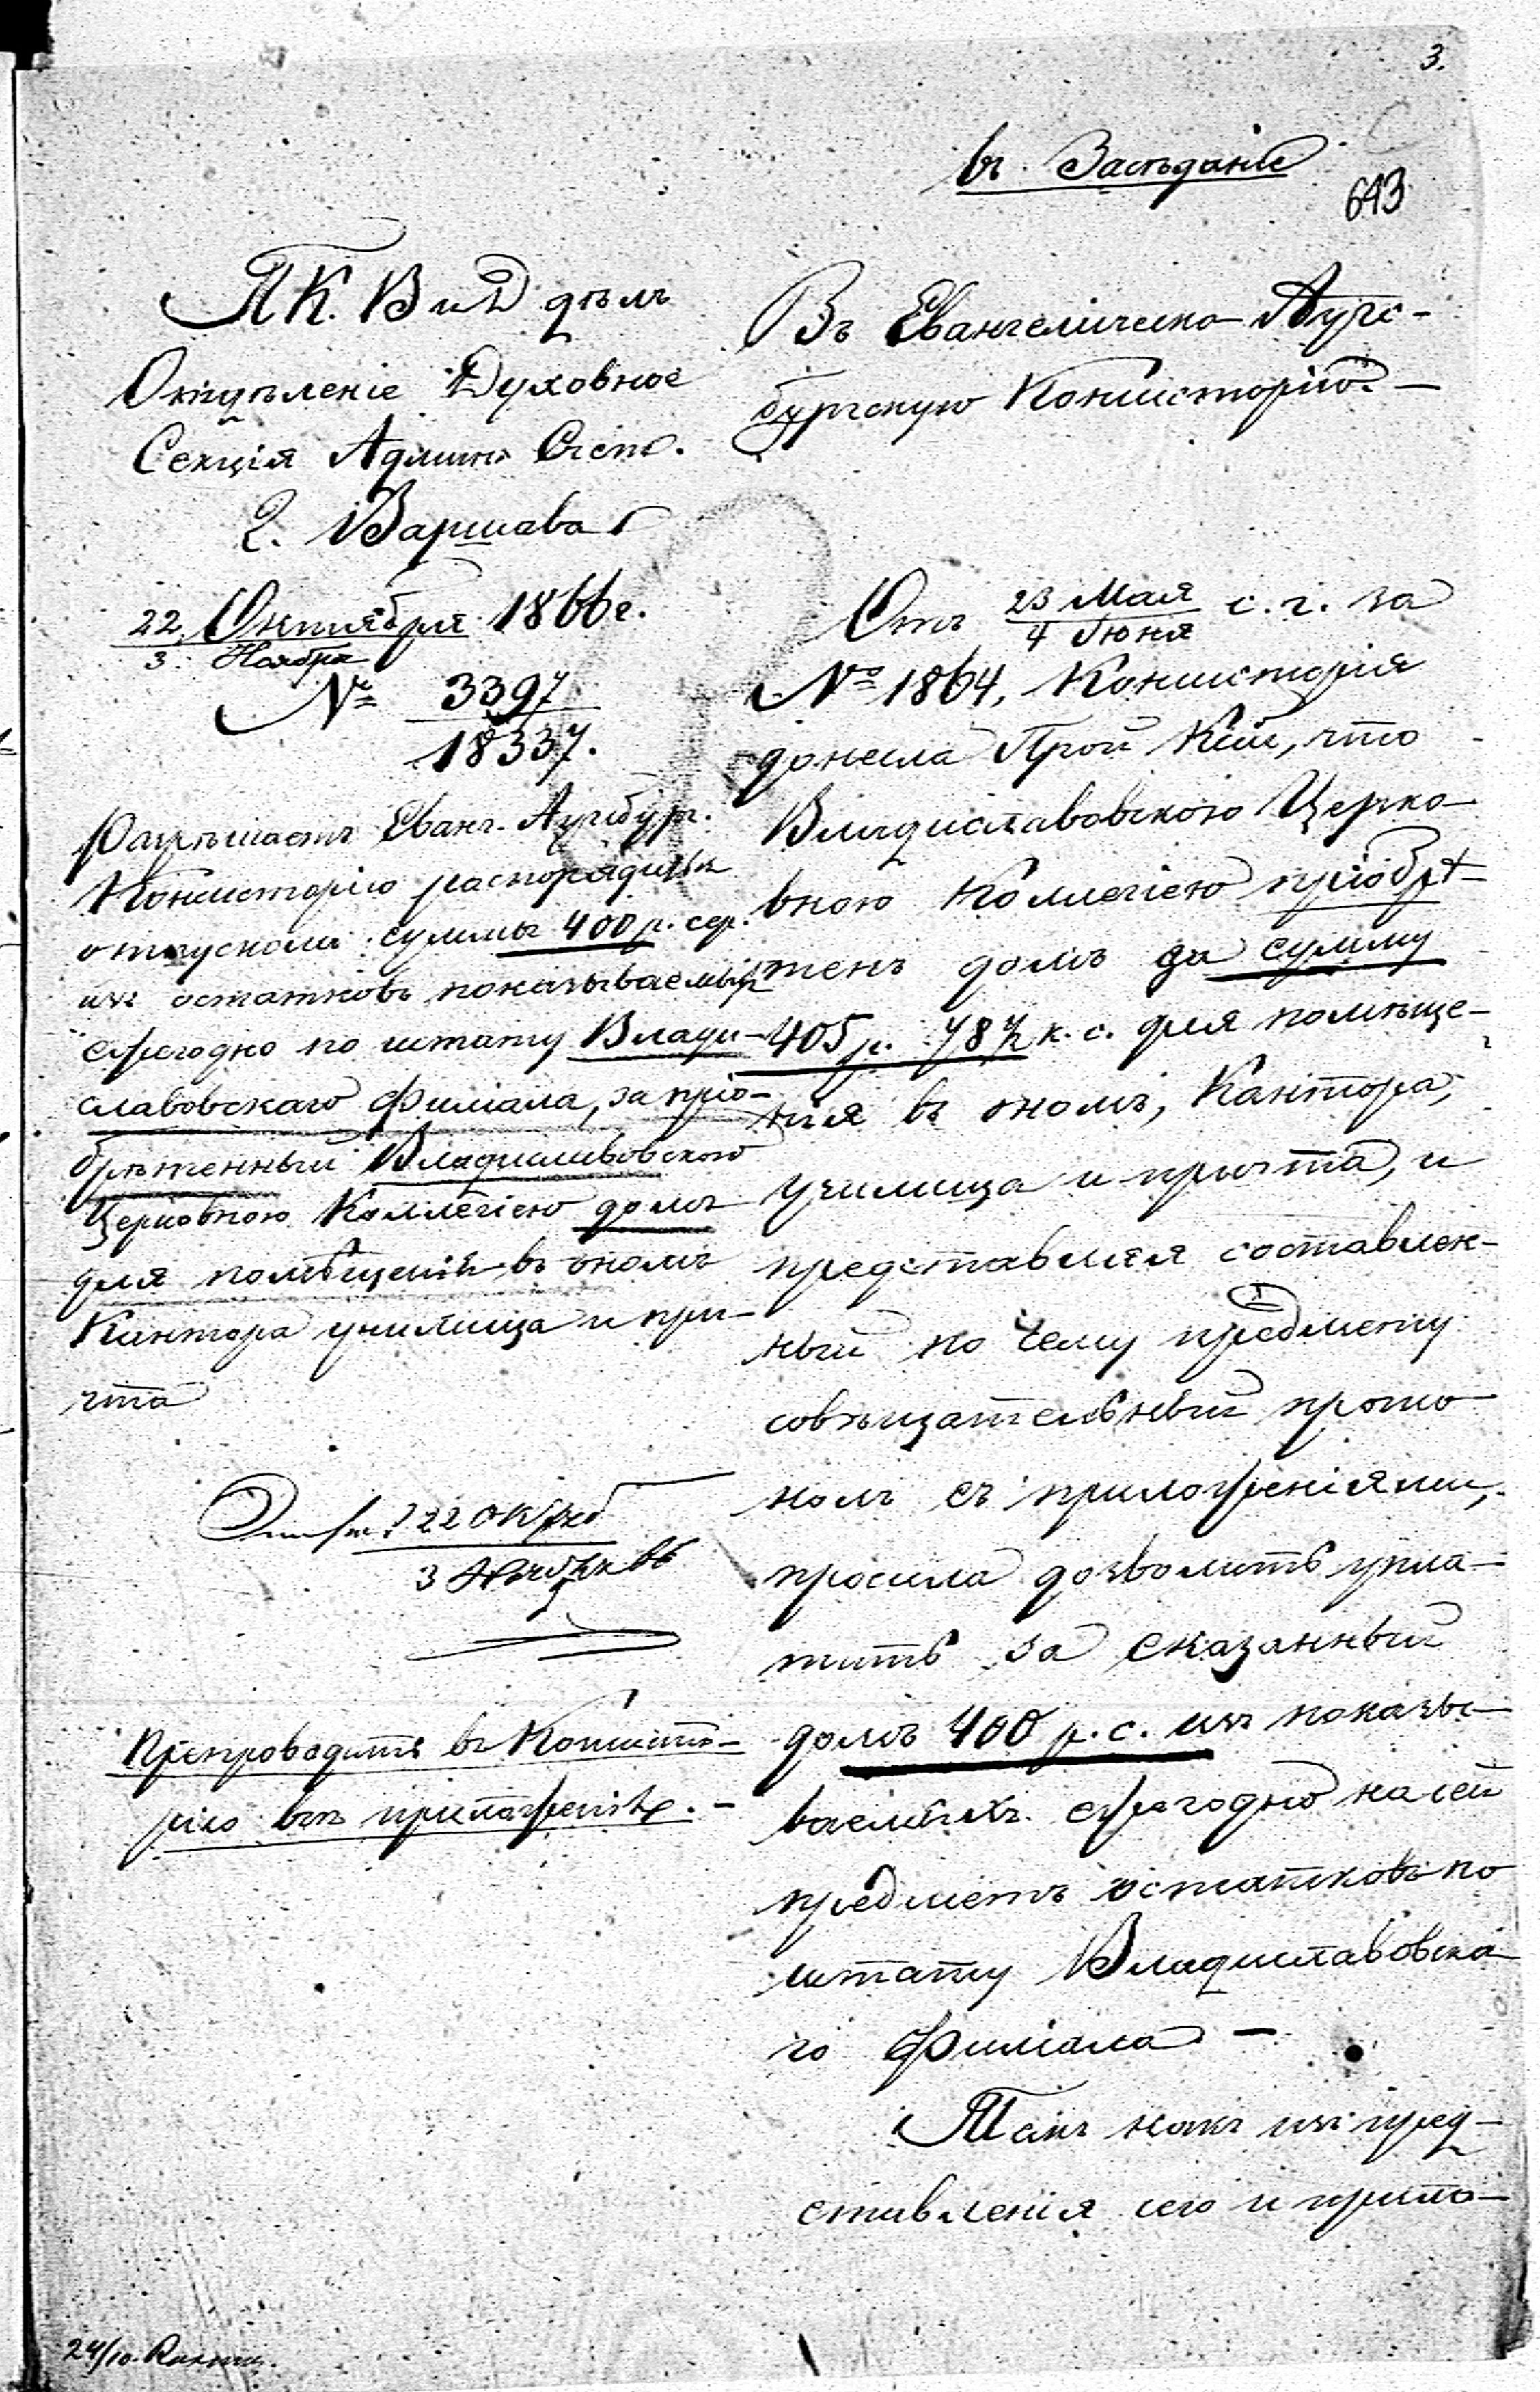 3.
въ Засѣданіе
643
П К. В и Д дѣлъ
Отдѣленіе Духовное
Секція Админ. Счетн.
г. Варшава
22 Октября 1866 г.
3 Ноября
№ 3397
18337.
Разрѣшаетъ Еванг. Аугсбург.
Консисторію распорядиться
отпускомъ суммы 400 р. сер.
изъ остатковъ показываемыхъ
ежегодно по штату Влади-
славовскаго Филіала, за пріо-
брѣтенный Владиславовскою
Церковною Коллегіею домъ
для помѣщенія въ ономъ
Кантора училища и при-
чта
22 Октяб
3 Ноября 66
Препроводить въ Консисто-
рію всѣ приложенія. -
24/10.
Въ Евангелическо-Аугс-
бургскую Консисторію. -
Отъ 23 Мая с. г. за
4 Іюня
№ 1864, Консисторія
донесла Прой Кіи, что
Владиславовскою Церко-
вною Коллегіею пріобрѣ-
тенъ домъ за сумму
405 р. 78½ к. с. для помѣще-
нія въ ономъ, Кантора,
училища и причта, и
представляя составлен-
ный по сему предмету
совѣщательный прото-
колъ съ приложеніями,
просила дозволить упла-
тить за сказанный
домъ 400 р. с. изъ показы-
ваемыхъ ежегодно на сей
предметъ остатковъ по
штату Владиславовска-
го Филіала -
Такъ какъ изъ пред-
ставленія сего и прило-